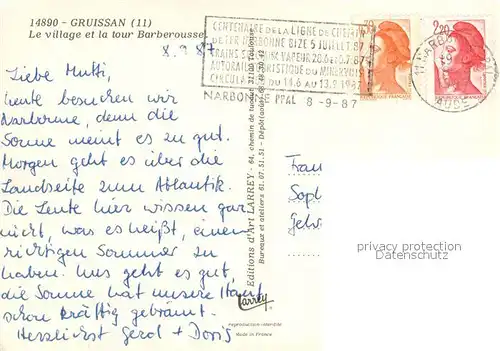 14890 - GRUISSAN (11)
Le village et la tour Barberousse
8.9.87
Liebe Mutti,
heute besuchen wir
Narbonne, denn die
Sonne meint es zu gut.
Morgen geht es über die
Landseite zum Atlantik.
Die Leute hier wissen gar
nicht, was es heißt, einen
richtigen Sommer zu
haben. Uns geht es gut,
die Sonne hat unsere Haut
schon kräftig gebrannt.
Herzlichst Gerd + Doris
Editions d'Art LARREY - 64, chemin de 31100 Toulouse
Bureaux et ateliers 61.07.51.51 - Dépôt
Larrey
reproduction interdite
Made in France
CENTENAIRE DE LA LIGNE DE CHEMIN
DE FER NARBONNE BIZE 5 JUILLET 87
TRAINS VAPEUR
AUTORAIL TOURISTIQUE DU MINERVOIS
CIRCULA DU 14.6 AU 13.9 1987
NARBONNE PPAL 8-9-87
2,20
11 NARBO
AUDE
Frau
Sop
Geh
privacy protection
Sammler.com